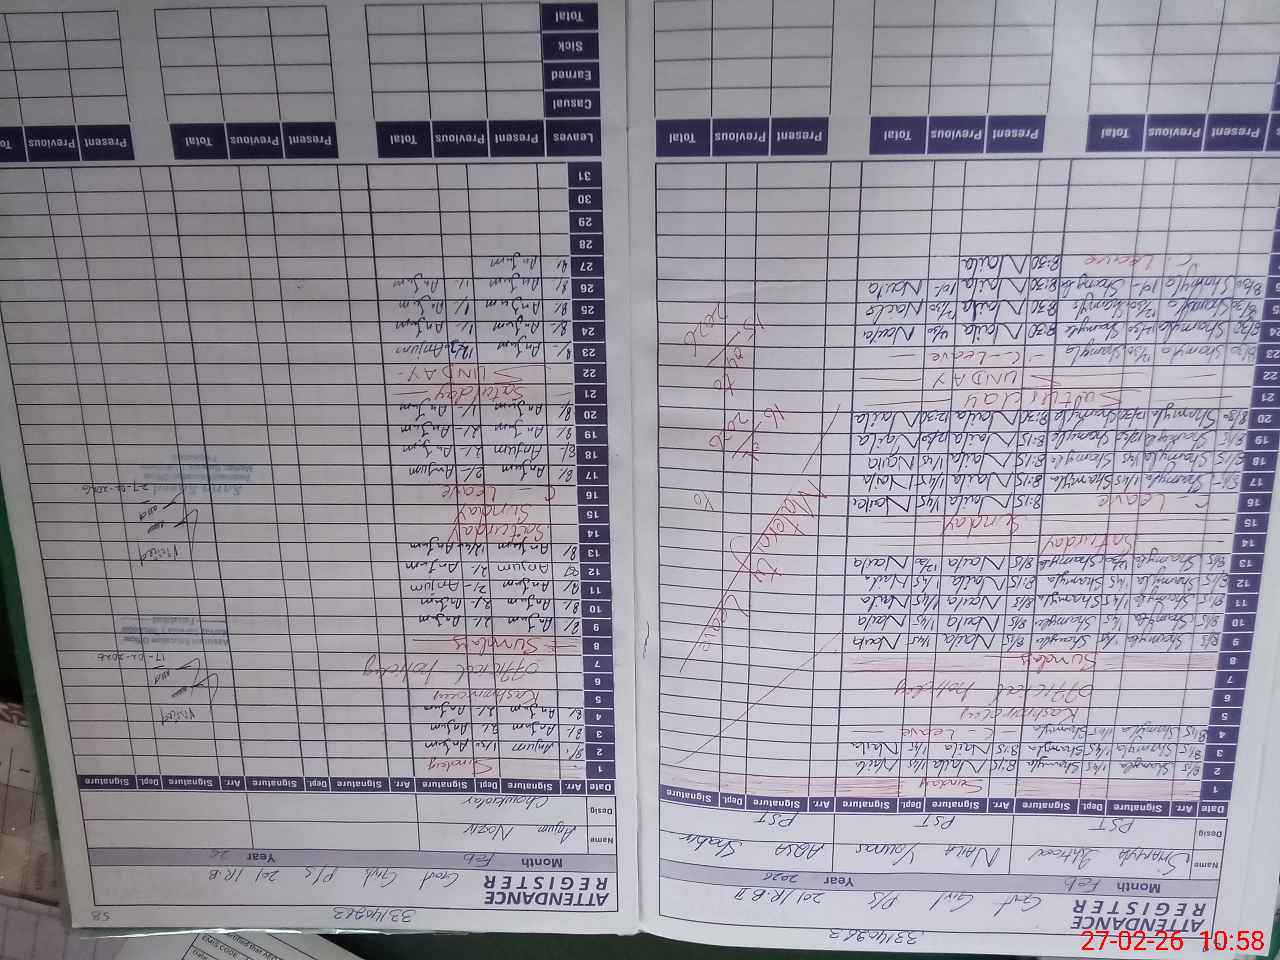 33140263
ATTENDANCE
REGISTER
Govt Girl P/S 201/R.B II
Month Feb Year 2026
Name Shamyla Naila Younas AQSA
Desig PST PST PST
Date Arr. Signature Dept. Signature Arr. Signature Dept. Signature Arr. Signature Dept. Signature
1 Sunday
2 8/15 Shamyla 1/45 Shamyla 8:15 Naila 1/45 Naila
3 8/15 Shamyla 1/45 Shamyla 8:15 Naila 1/45 Naila
4 8/15 Shamyla 1/45 Shamyla C-Leave
5 Kashmir day
6 official holiday
7
8 Sunday
9 8/15 Shamyla 1/45 Shamyla 8/15 Naila 1/45 Naila
10 8/15 Shamyla 1/45 Shamyla 8/15 Naila 1/45 Naila
11 8/15 Shamyla 1/45 Shamyla 8/15 Naila 1/45 Naila
12 8/15 Shamyla 1/45 Shamyla 8/15 Naila 1/45 Naila
13 8/15 Shamyla 12/30 Shamyla 8/15 Naila 12/30 Naila
14 Saturday
15 Sunday
16 C-Leave 8:15 Naila 1/45 Naila
17 8/15 Shamyla 1/45 Shamyla 8:15 Naila 1/45 Naila
18 8/15 Shamyla 1/45 Shamyla 8:15 Naila 1/45 Naila
19 8/15 Shamyla Shamyla 8:15 Naila Naila
20 8/30 Shamyla 12/30 Shamyla 8:30 Naila 12:30 Naila
21 Saturday
22 SUNDAY
23 8/30 Shamyla 12/30 Shamyla C-Leave
24 8/30 Shamyla 12/30 Shamyla 8:30 Naila Naila
25 8/30 Shamyla 12/30 Shamyla 8:30 Naila 12/30 Naila
26 8/30 Shamyla Shamyla 8:30 Naila Naila
27 C-Leave 8:30 Naila
Maternity
Leave
2026
to
2026
Present Previous Total Present Previous Total Present Previous Total
33140263
58
ATTENDANCE
REGISTER
Govt Girls P/S 201/R.B
Month Feb Year 26
Name Anjum Nazir
Desig Chowkidar
Date Arr. Signature Dept. Signature Arr. Signature Dept. Signature Arr. Signature Dept. Signature
1 Sunday
2 8/- Anjum Anjum
3 8/- Anjum 2/- Anjum
4 8/- Anjum 2/- Anjum
5 Kashmir day
6 official holiday
7
8 Sunday
9 8/- Anjum 2/- Anjum
10 8/- Anjum 2/- Anjum
11 8/- Anjum 2/- Anjum
12 Anjum 2/- Anjum
13 8/- Anjum Anjum
14 Saturday
15 Sunday
16 C-Leave
17 8/- Anjum 2/- Anjum
18 8/- Anjum 2/- Anjum
19 8/- Anjum 2/- Anjum
20 8/- Anjum 1/- Anjum
21 Saturday
22 SUNDAY
23 8/- Anjum Anjum
24 8/- Anjum 1/- Anjum
25 8/- Anjum 1/- Anjum
26 8/- Anjum 1/- Anjum
27 8/- Anjum
28
29
30
31
Visited
17-02-2026
Assistant Education Officer
Visited
27-02-2026
Leaves Present Previous Total Present Previous Total Present Previous
Casual
Earned
Sick
Total
27-02-26 10:58